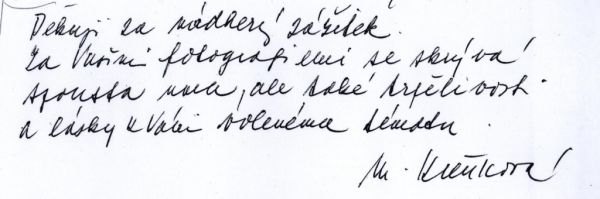 Děkuji za nádherný zážitek.
Za Vašimi fotografiemi se skrývá
spousta uma, ale také trpělivosti
a lásky k Vámi volenému tématu.
M.